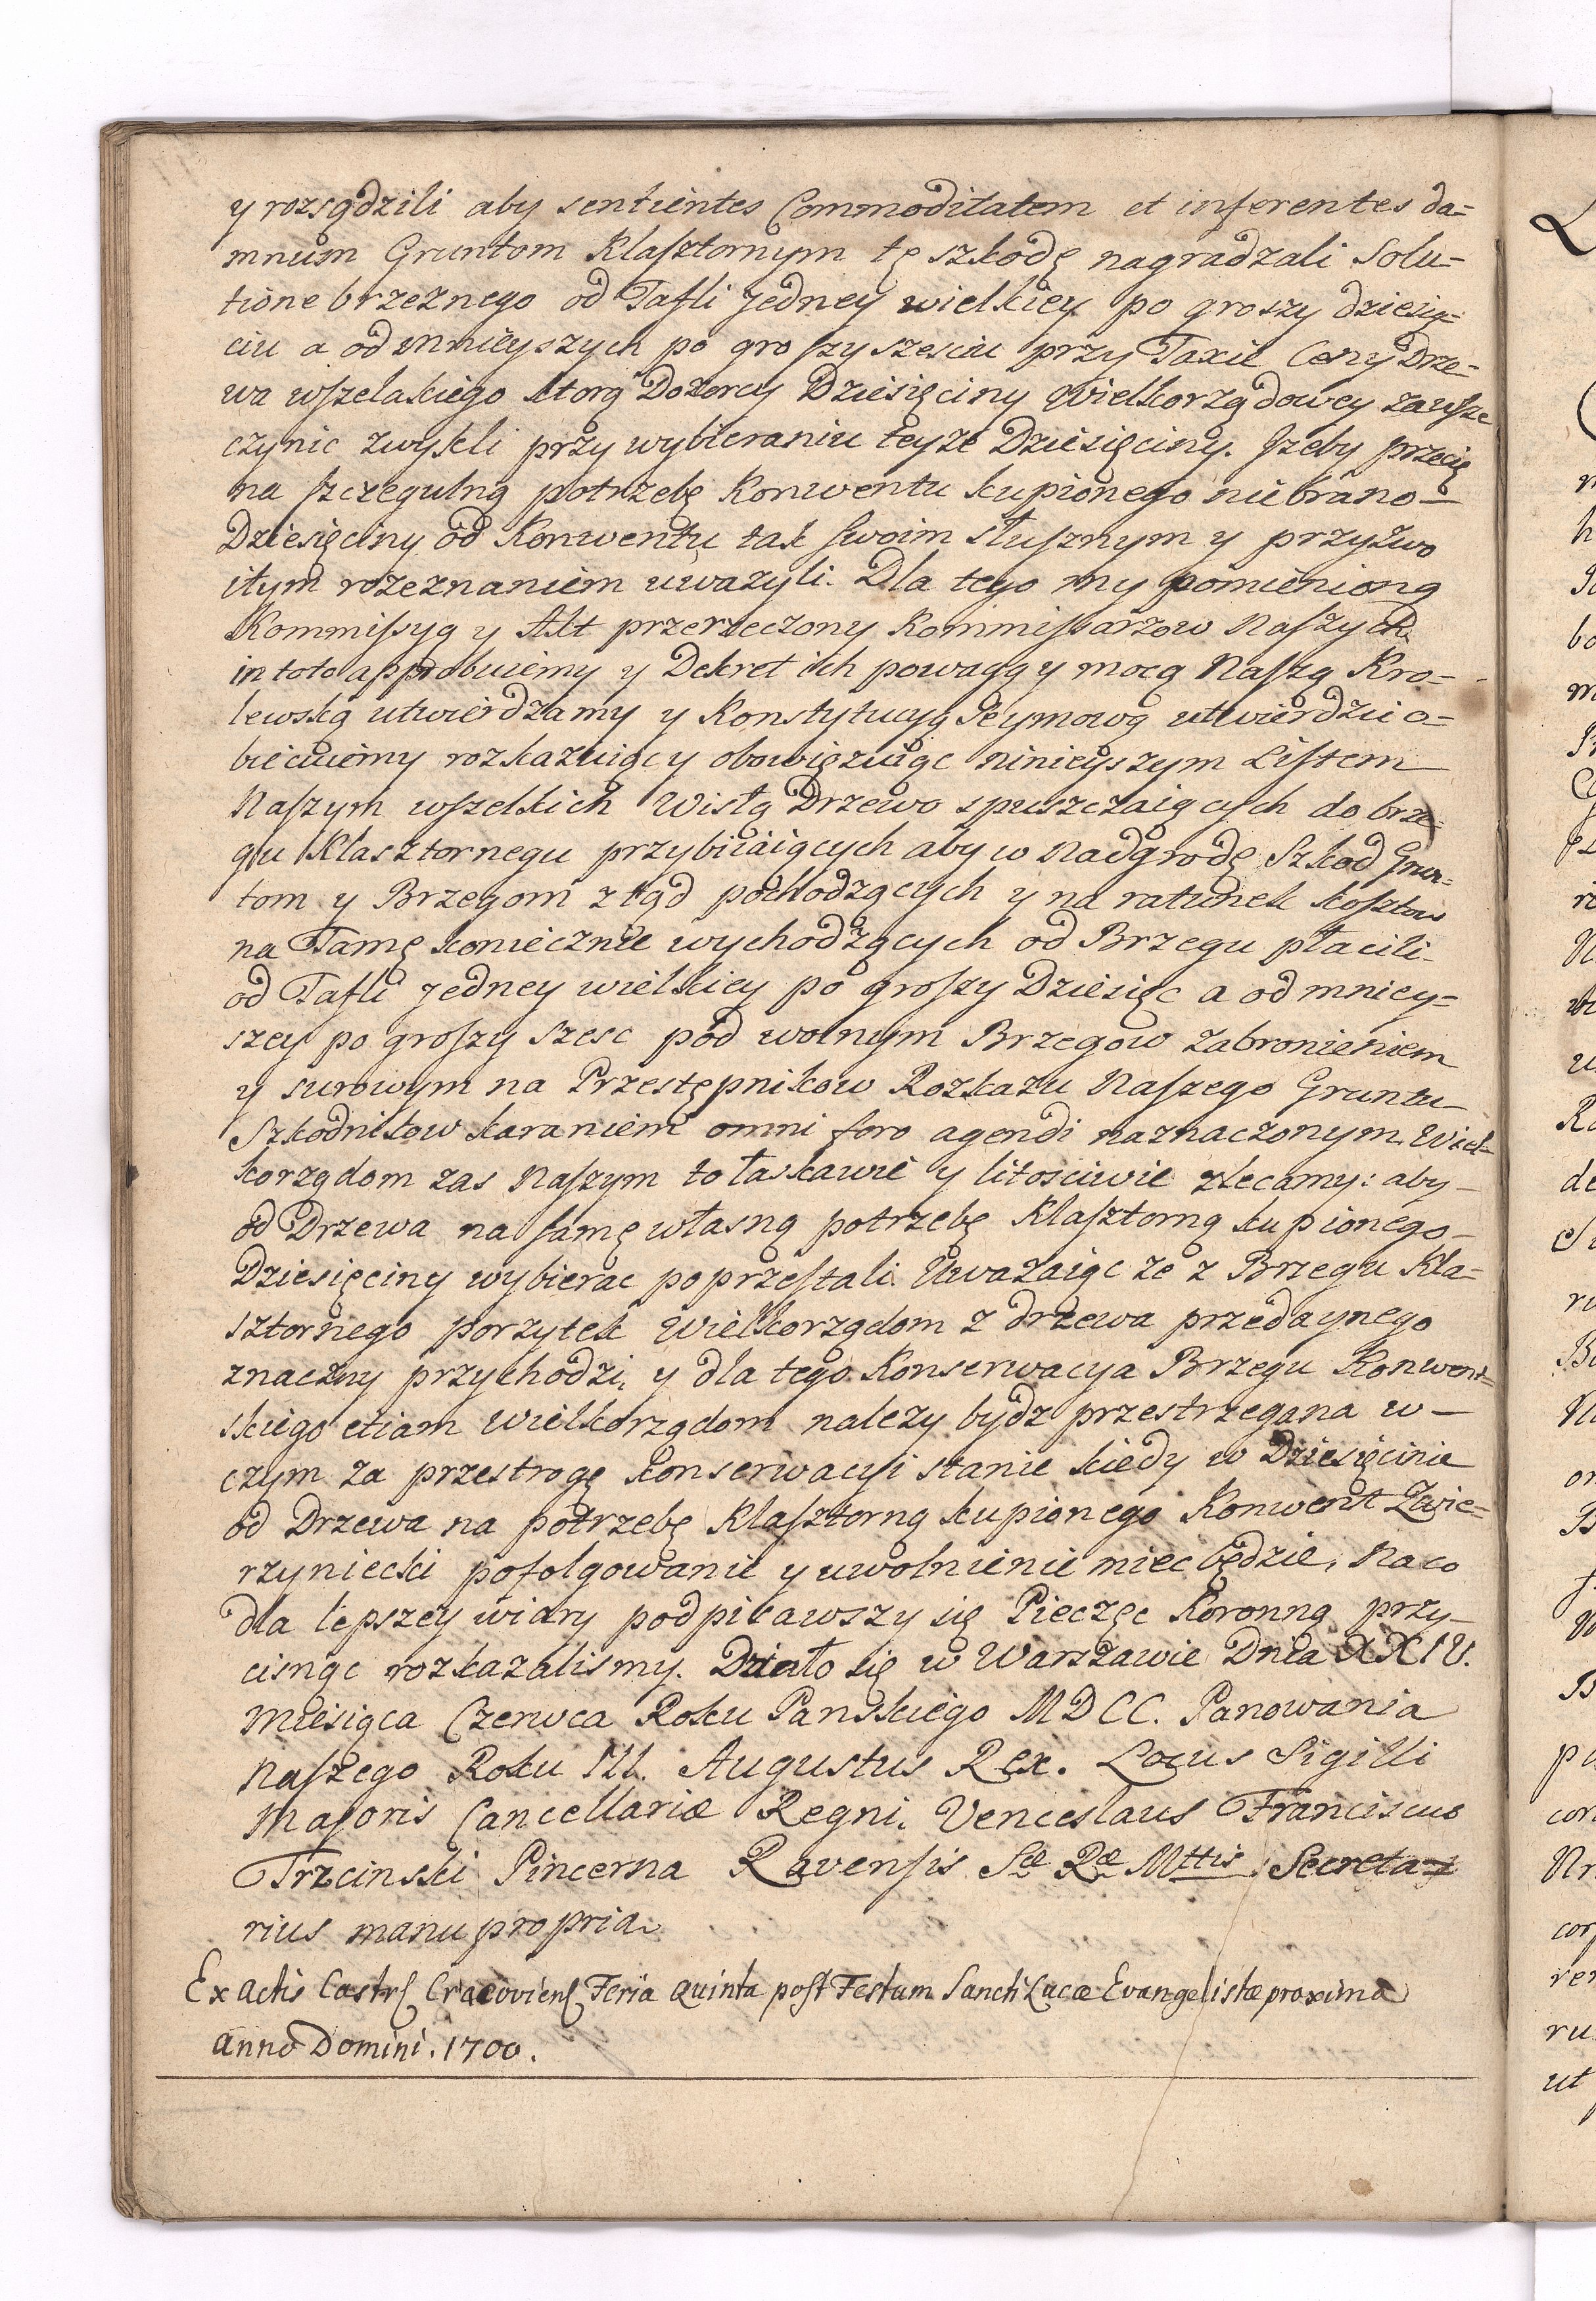 y rozsądzili aby sentientes Commoditatem et inferentes da=
mnum Gruntom Klasztornym tę szkodę nagradzali Solu-
tione brzeznego od Tafli Jedney wielkiey po groszy dziesią=
ciu a od mnieyszych po groszy szesciu przy Taxie Ceny Drze-
wa wszelakiego ktorą Dozorcy Dziesięciny Wielkorządowey zawsze
czynic zwykli przy wybieraniu teyze Dziesięciny. Jzeby przecię
na szczegulną potrzebę Konwentu kupionego nie brano—
Dziesięciny od Konwentu tak swoim słusznym y przyzwo
itym rozeznaniem uwazyli. Dla tego my pomienioną
Kommissyą y Akt przerzeczony Kommissarzow Naszych
in toto approbuiemy y Dekret ich powagą y mocą Naszą Kro-
lewską utwierdzamy y Konstytucyą Seymową utwierdzic o=
biecuiemy rozkazuiąc y obowięzuiąc ninieyszym Listem
Naszym wszelkich Wisłą Drzewo spuszczaiących do brze=
gu Klasztornegu przybiiaiących aby w Nadgrodę Szkod Grun=
tom y Brzegom ztąd pochodzących y na ratunek kosztow
na Tamę koniecznie wychodzących od Brzegu płacili-
od Tafli Jedney wielkiey po groszy Dziesięc a od mniey=
szey po groszy szesc pod wolnym Brzegow zabronieniem
y surowym na Przestępnikow Rozkazu Naszego Gruntu—
Szkodnikow karaniem omni foro agendi naznaczonym. Wiel=
korządom zas Naszym to łaskawie y litosciwie zlecamy: aby—
od Drzewa na samę własną potrzebę Klasztorną kupionego—
Dziesięciny wybierac poprzestali. Uwazaiąc ze z Brzegu Kla=
sztornego porzytek Wielkorządom z drzewa przedaynego
znaczny przychodzi, y dla tego Konserwacya Brzegu Konwent=
skiego etiam Wielkorządom nalezy bydz przestrzegana w—
czym za przestrogę konserwacyi stanie kiedy w Dziesięcinie
od Drzewa na potrzebę Klasztorną kupionego Konwent Zwie=
rzyniecki pofolgowanie y uwolnienie miec będzie, Na co
dla lepszey wiary podpisawszy się Pieczęc Koronną przy—
cisnąc rozkazalismy. Działo się w Warszawie Dnia XXIV.
Miesiąca Czerwca Roku Panskiego MDCC. Panowania
Naszego Roku III. Augustus Rex. Locus Sigilli
Majoris Cancellariæ Regni. Venceslaus Franciscus
Trzcinski Pincerna Ravensis Sæ Ræ Mttis Secreta=
rius manu propria.
Ex Actis Castrſ Cracovienſ Feria Quinta post Festum Sancti Lucæ Evangelistæ proxima
Anno Domini. 1700.